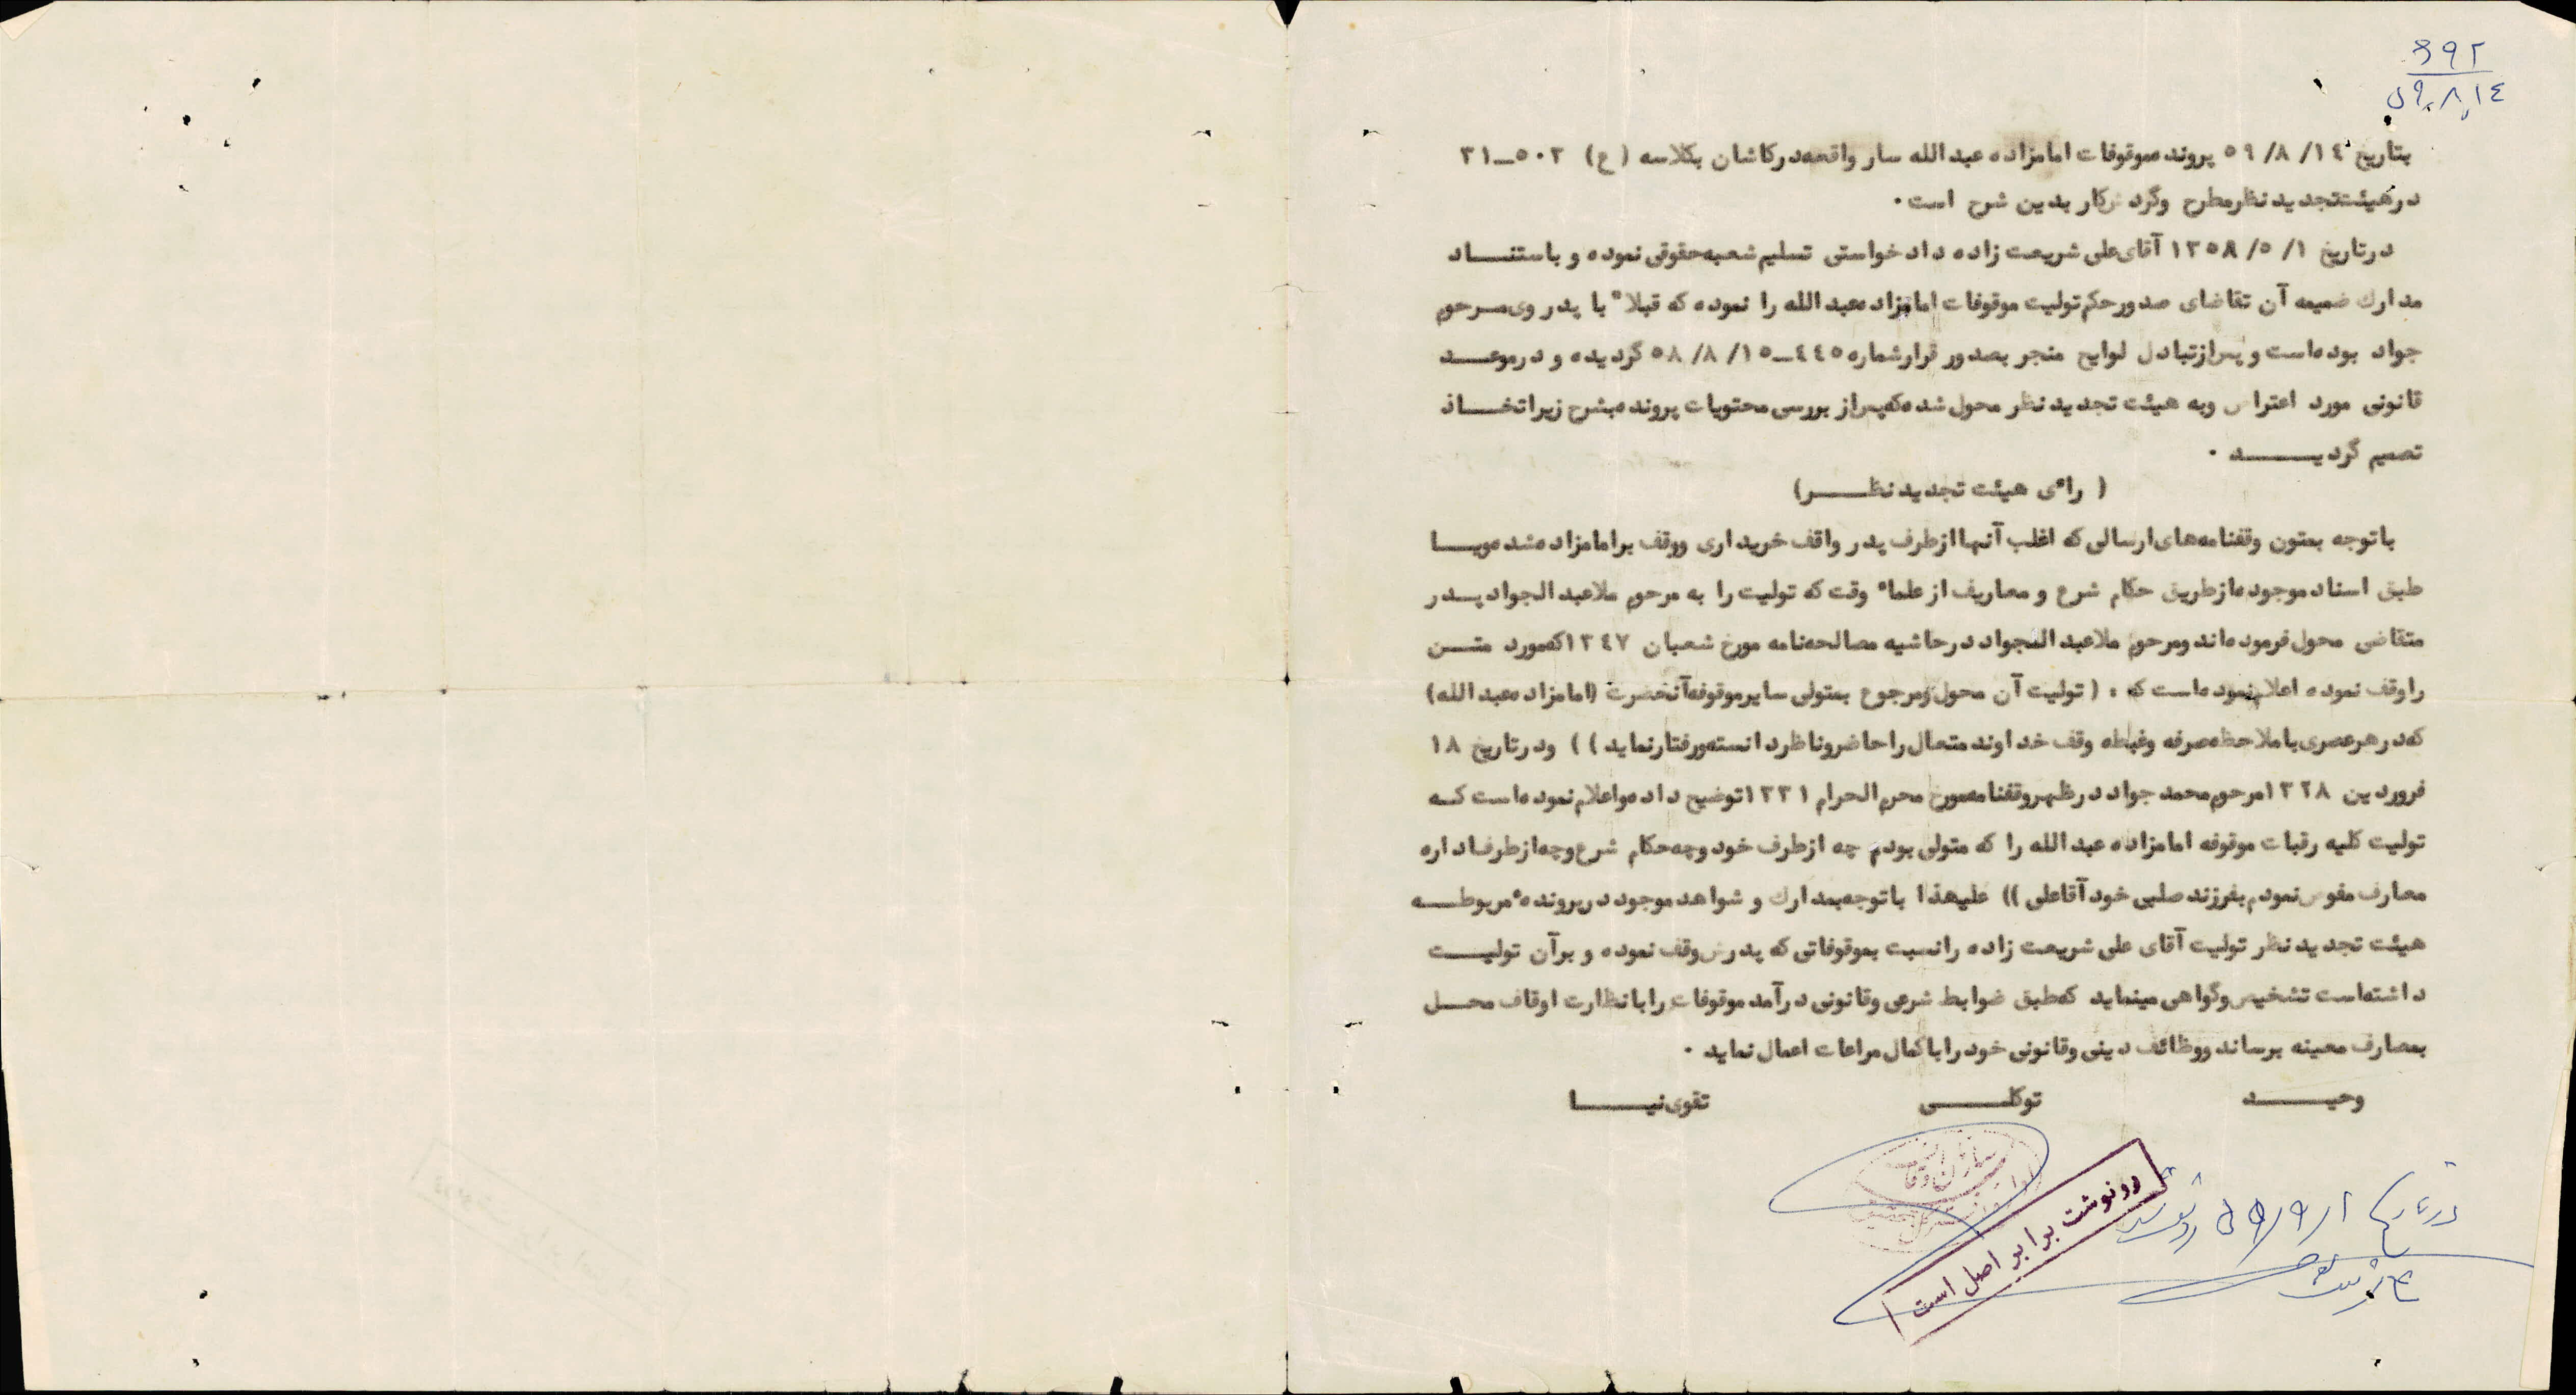 ۶۹۲
۵۹٫۸٫۱٤
بتاریخ ۱٤/ ۸/ ۵۹ پرونده موقوفات امامزاده عبدالله سار واقعه در کاشان بکلاسه (ع) ۵۰۲ــ۳۱
در هیئت تجدید نظر مطرح و گردش کار بدین شرح است ۰
در تاریخ ۱/ ۵/ ۱۳۵۸ آقای علی شریعت زاده دادخواستی تسلیم شعبه حقوقی نموده و باستنـــاد
مدارک ضمیمه آن تقاضای صدور حکم تولیت موقوفات امامزاده عبدالله را نموده که قبلاً با پدر وی مــرحوم
جواد بوده است و پس از تبادل لوایح منجر بصدور قرار شماره ٤٤۵ــ۱۵/ ۸/ ۵۸ گردیده و در موعـــد
قانونی مورد اعتراض و به هیئت تجدید نظر محول شده که پس از بررسی محتویات پرونده بشرح زیر اتخـــاذ
تصمیم گردیـــــد ۰
( راٴی هیئت تجدید نظـــــر)
با توجه بمتون وقفنامه های ارسالی که اغلب آنها از طرف پدر واقف خریداری ووقف بر امامزاده شده و یـــا
طبق اسناد موجوده از طریق حکام شرع و معاریف از علماء وقت که تولیت را به مرحوم ملاعبدالجواد پــدر
متقاضی محول فرموده اند و مرحوم ملاعبدالجواد در حاشیه مصالحه نامه مورخ شعبان ۱۳٤۷ که مورد متـــن
را وقف نموده اعلام نموده است که : ( تولیت آن محول و مرجوع بمتولی سایر موقوفه آنحضرت (امامزاده عبدالله)
که در هر عصری با ملاحظه صرفه و غبطه وقف خداوند متعال را حاضر و ناظر دانسته و رفتار نماید ) ) و در تاریخ ۱۸
فروردین ۱۳۲۸ مرحوم محمد جواد در ظهر وقفنامه مورخ محرم الحرام ۱۳۳۱ توضیح داده و اعلام نموده است کــه
تولیت کلیه رقبات موقوفه امامزاده عبدالله را که متولی بودم چه از طرف خود و چه حکام شرع و چه از طرف اداره
معارف مفوض نمودم بفرزند صلبی خود آقاعلی )) علیهذا با توجه بمدارک و شواهد موجود در پروندهٴ مربوطـــه
هیئت تجدید نظر تولیت آقای علی شریعت زاده را نسبت بموقوفاتی که پدرش وقف نموده و بر آن تولیـــت
داشته است تشخیص و گواهی مینماید که طبق ضوابط شرعی و قانونی درآمد موقوفات را با نظارت اوقاف محـــل
بمصارف معینه برساند و وظائف دینی و قانونی خود را با کمال مراعات اعمال نماید ۰
وحیـــــد توکلـــــی تقوی نیـــــا
سازمان اوقاف
رونوشت برابر اصل است
در تاریخ ۵۹/۹/۱ رونوشت